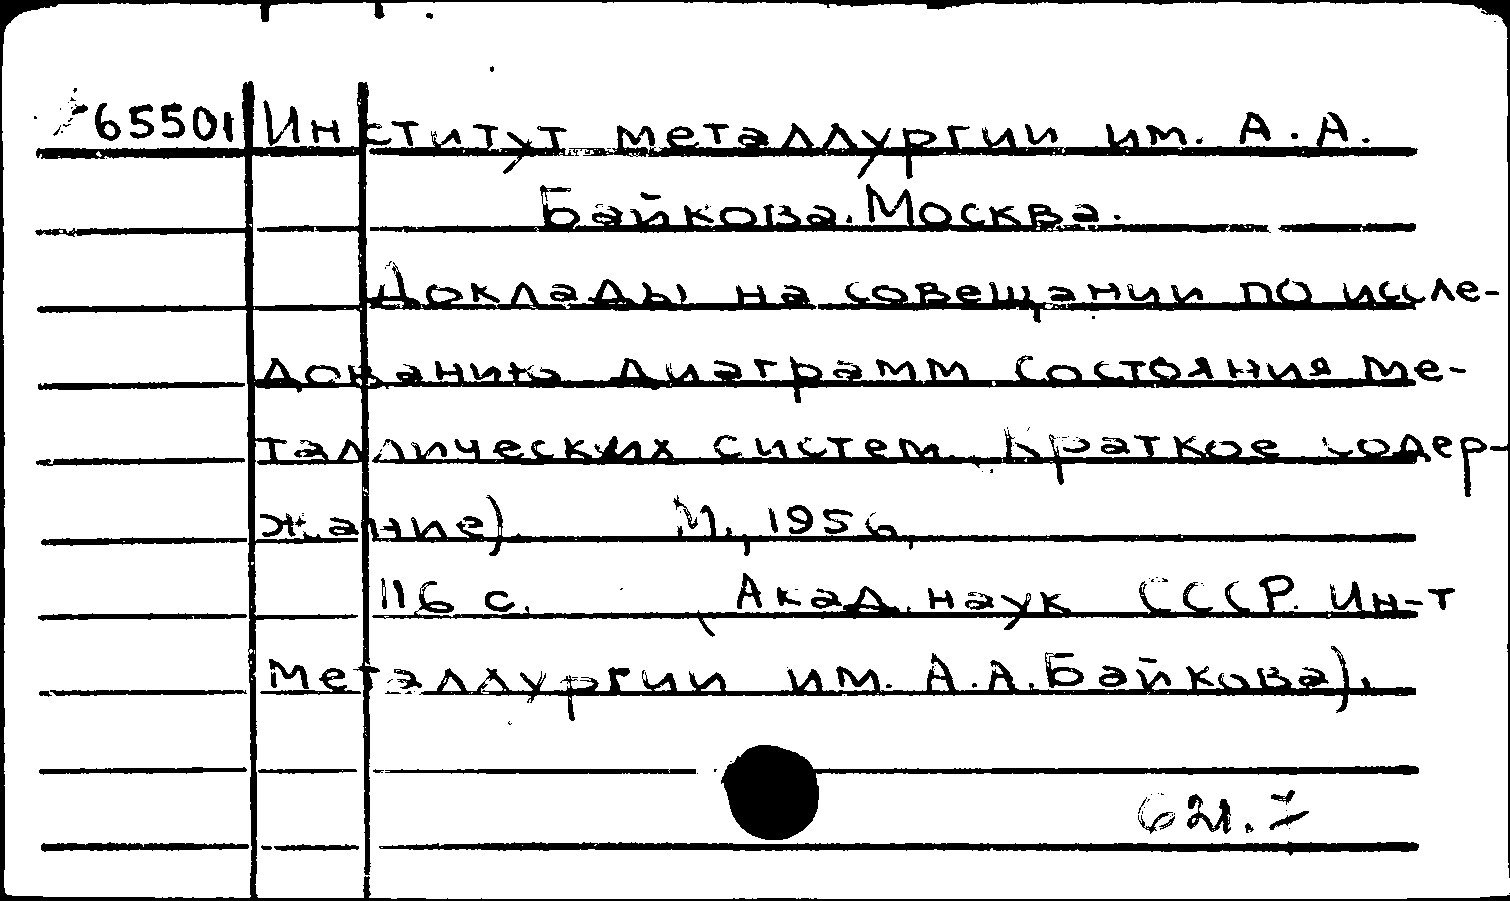 65501 Институт металлургии им. А.А.
Байкова. Москва.
Доклады на совещании по иссле-
дованию диаграмм состояния ме-
таллических систем. Краткое содер-
жание). М., 1956.
116 с. (Акад. наук СССР. Ин-т
металлургии им. А.А.Байкова).
621.7